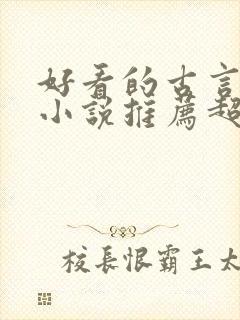 好看的古言
小說推薦超
校長恨霸王太